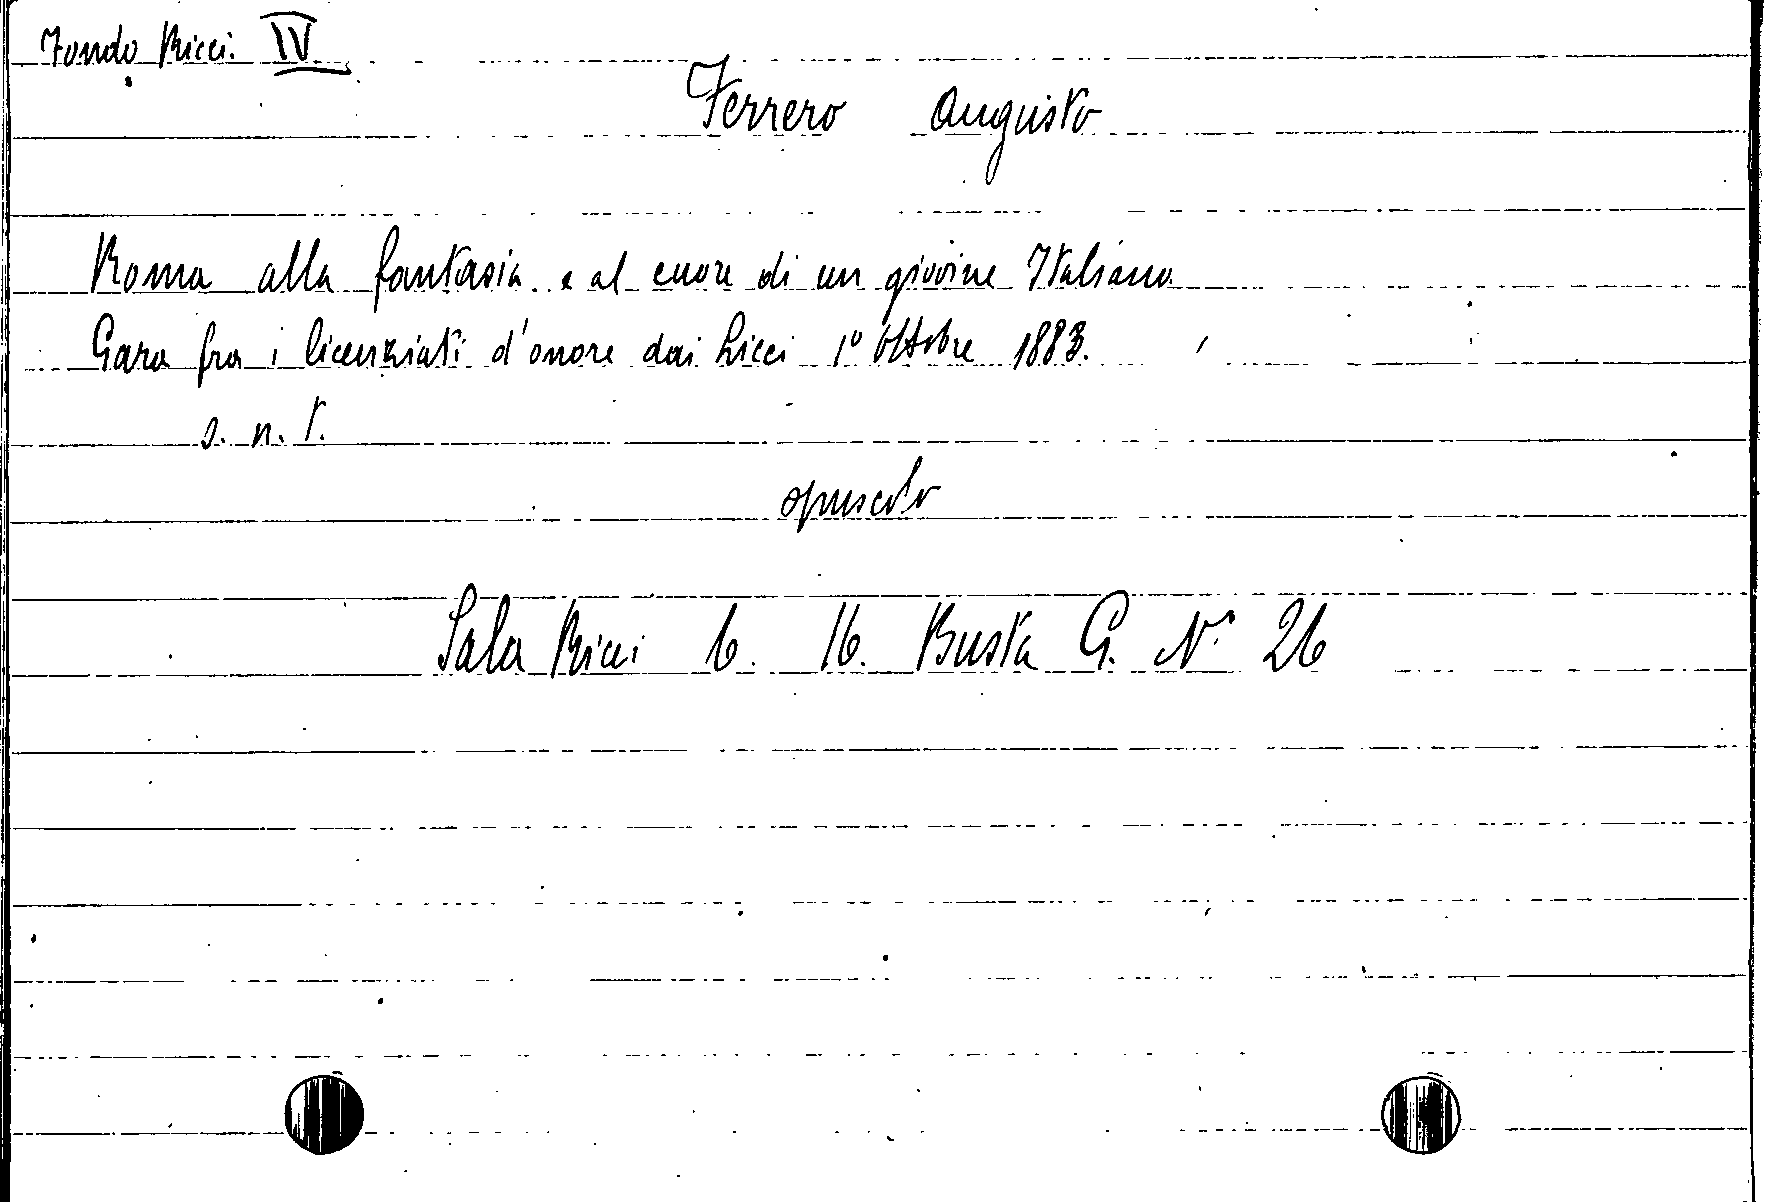 Fondo Ricci. IV
Ferrero Augusto
Roma alla fantasia e al cuore di un giovine Italiano
Gara fra i licenziati d'onore dai Licei 1º Ottobre 1883.
s. n. t.
opuscolo
Sala Ricci 6. 16. Busta G. Nº 26